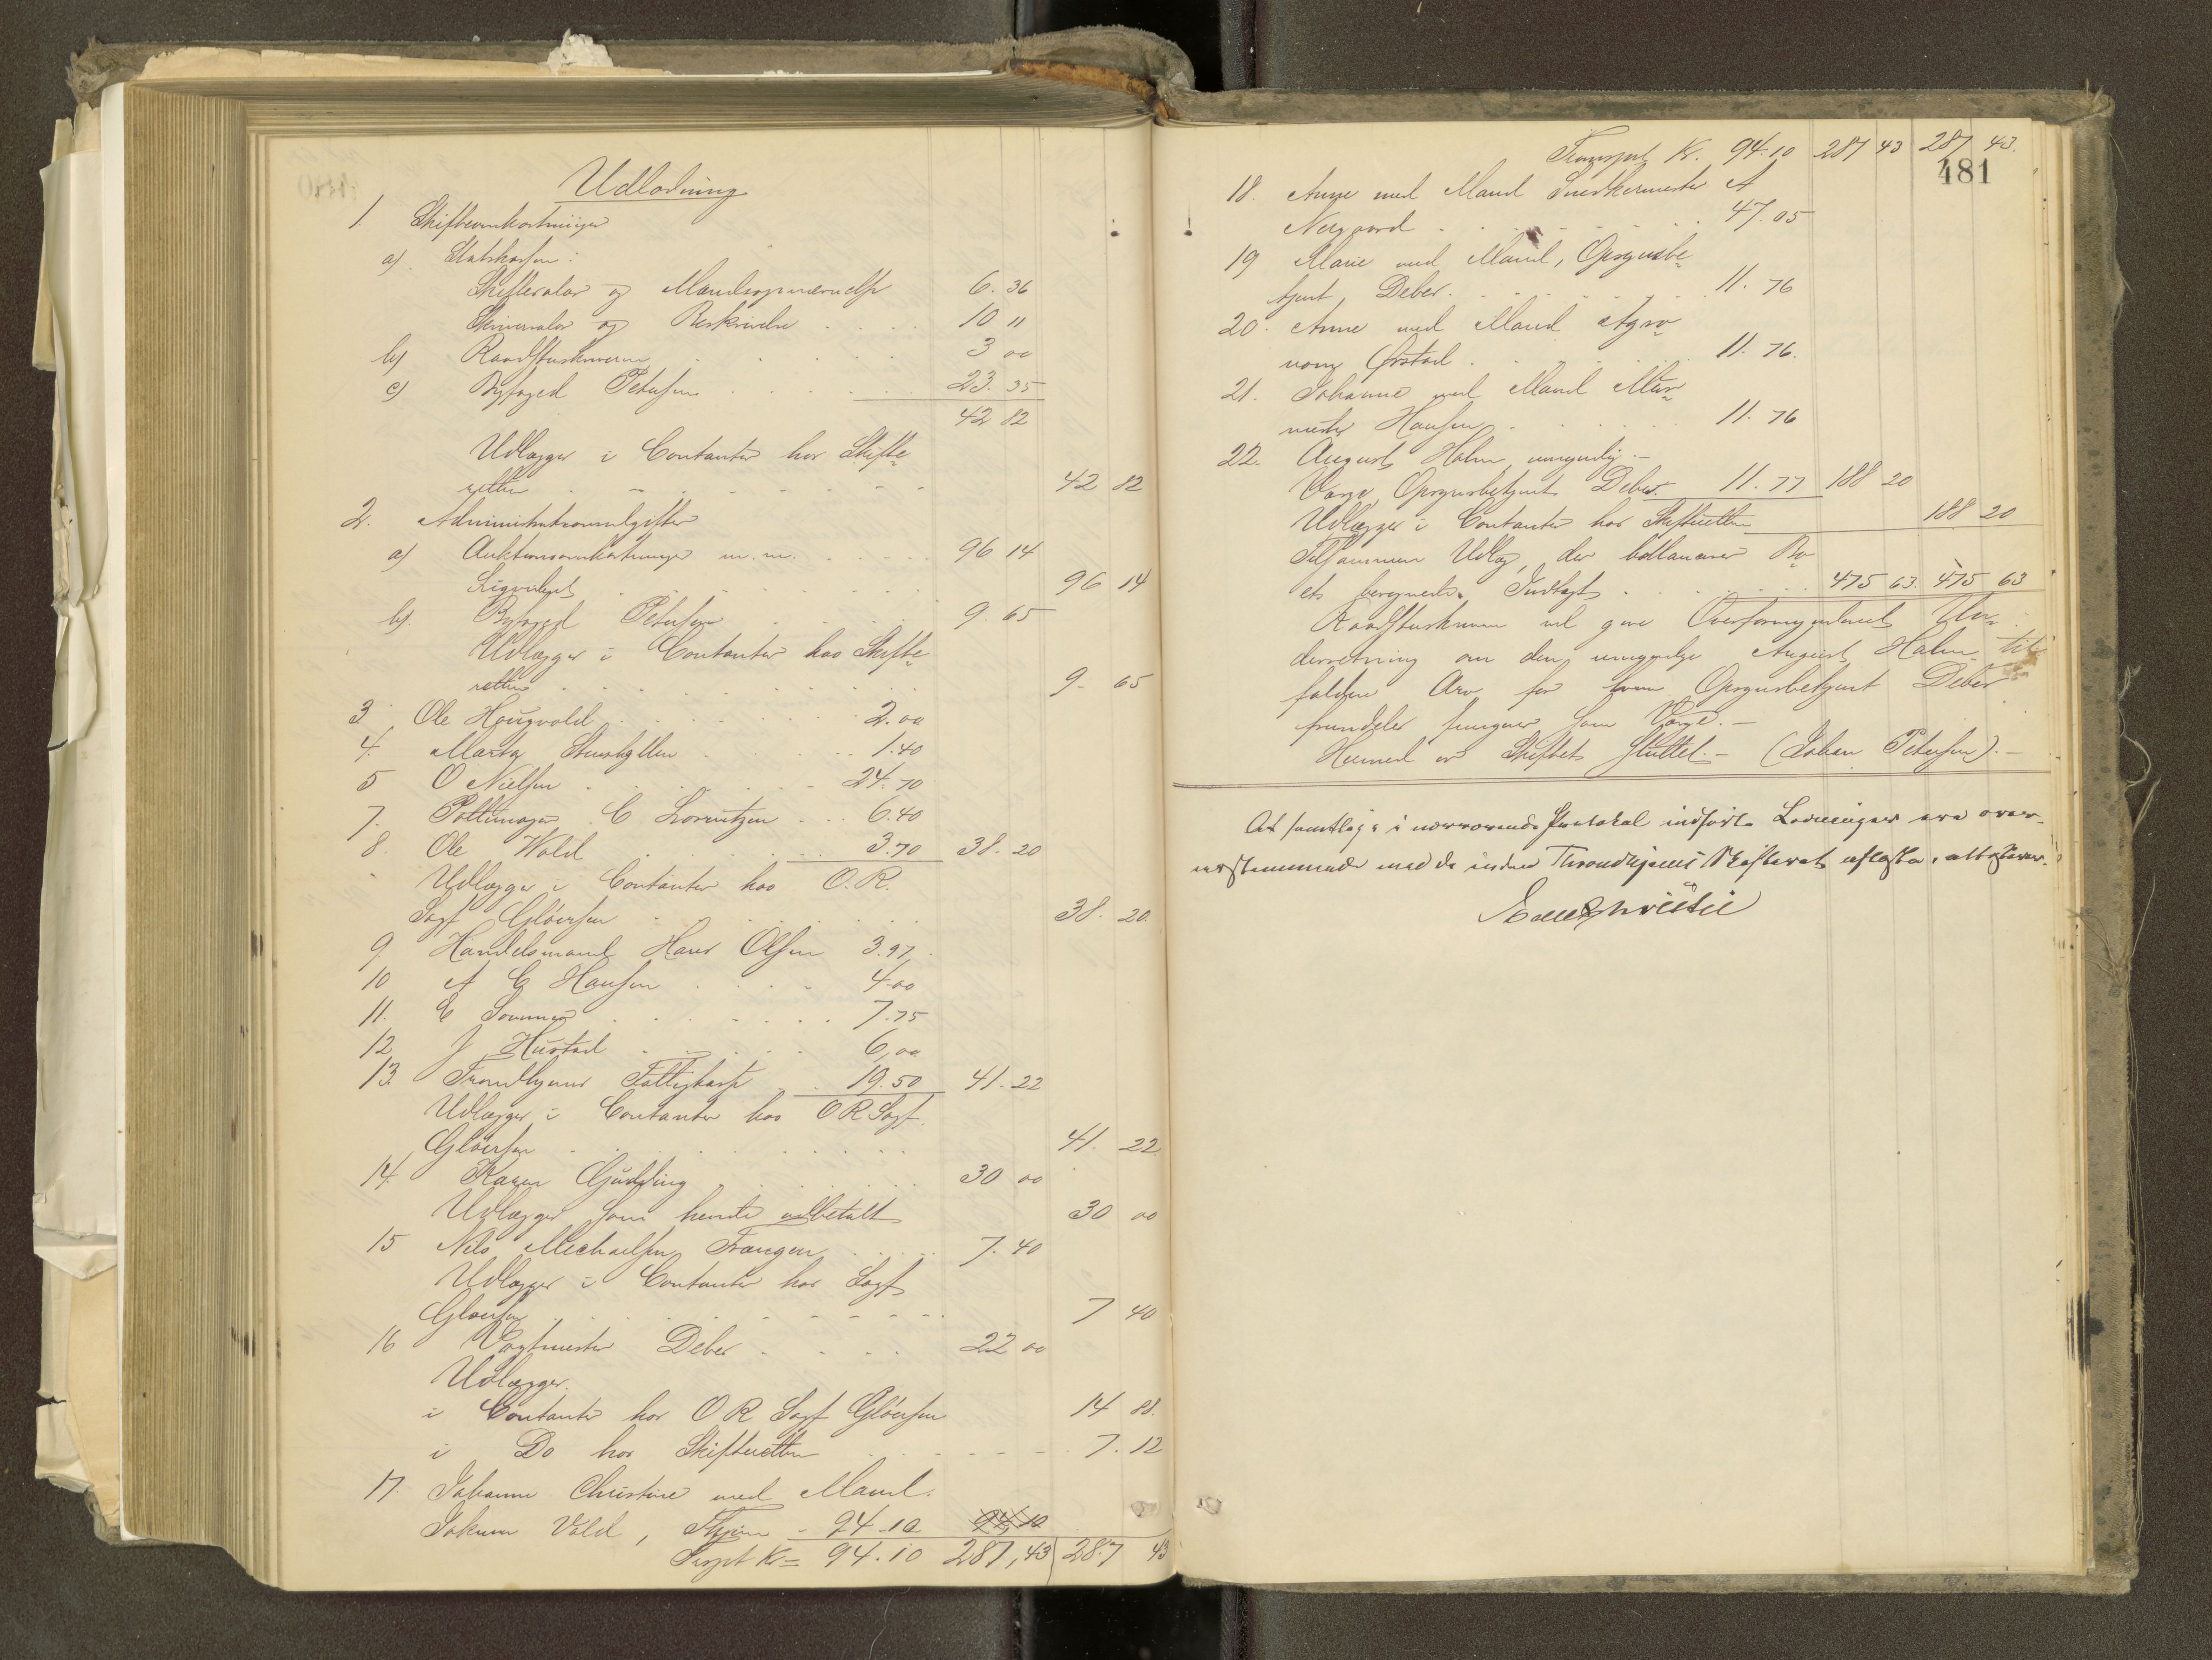 Udlodning
1. Skifteomkostninger
a) Statskassen:
Skifteralar og Mandsopnævnelse 6. 36
Skriveralar og Beskrivelse 10 "
b) Raadstuskriveren 3 00
c) Byfoged Petersen 23. 35
42 82
Udlægges i Contanter hos Skifte-
retten 42 82
2. Administrationsudgifter
a) Auktionsomkostninger m.m. 96 14
Ligvideret 96 14
b) Byfoged Petersen 9. 65
Udlægges i Contanter hos Skifte-
retten 9. 65
3 Ole Hougvold 2.00
4. Marta 1.40
5 O Nielsen 24.70
7. Pottemager C Lorentzen 6.40
8. Ole Wold 3.70 38. 20
Udlægges i Contanter hos O.R.
Sagf Gløersen 38. 20.
9. Handelsmand Hans Olsen 3.97
10 A C Hansen 4.00
11. E Sommer 7.75
12 J Hustad 6,00
13. Trondhjems Fattigkasse 19.50 41. 22
Udlægges i Contanter hos O R Sagf.
Gløersen 41. 22
14. Karen Gjudding 30 00
Udlægges som hende udbetalt 30 00
15 Nils Michaelsen Frangen 7. 40
Udlægges i Contanter hos Sagf
Gløersen 7 40
16 Vagtmester Deber 22 00
Udlægges.
i Contanter hos O R Sagf Gløersen 14 88.
i Do hos Skifteretten 7. 12
17. Johanne Christine med Mand.
Jokum Vold, 94.10 94 10
Trspt Kr = 94.10 287,43 287 43
Transport Kr. 94.10 287 43 287 43.
481
18. Anne med Mand Snedkermester A
Neergaard 47.05
19 Marie med Mand, Opsynsbe-
tjent, Deber. 11. 76
20. Anne med Mand Agro-
nom Ørstad 11. 76.
21. Johanne med Mand Mur-
mester Hansen 11. 76
22. August Holm umyndig.-
Værge, Opsynsbetjent Deber. 11. 77 188 20
Udlægges i Contanter hos Skifteretten 188 20
Tilsammen Udlæg, der ballancerer Bo-
ets beregnede Indtægt 475 63. 475 63
Raadstuskriveren vil give Overformynderiet Un-
derretning om den umyndige August Holm til-
faldne Arv for hvem Opsynsbetjent Deber
fremdeles fungerer som Værge.-
Hermed er Skiftet sluttet.- (Johan Petersen).-
At samtlige i nærværende Protokol indførte Lodninger ere over-
ensstemmende med de inden Throndhjems Skifteret aflagte, attesteres.